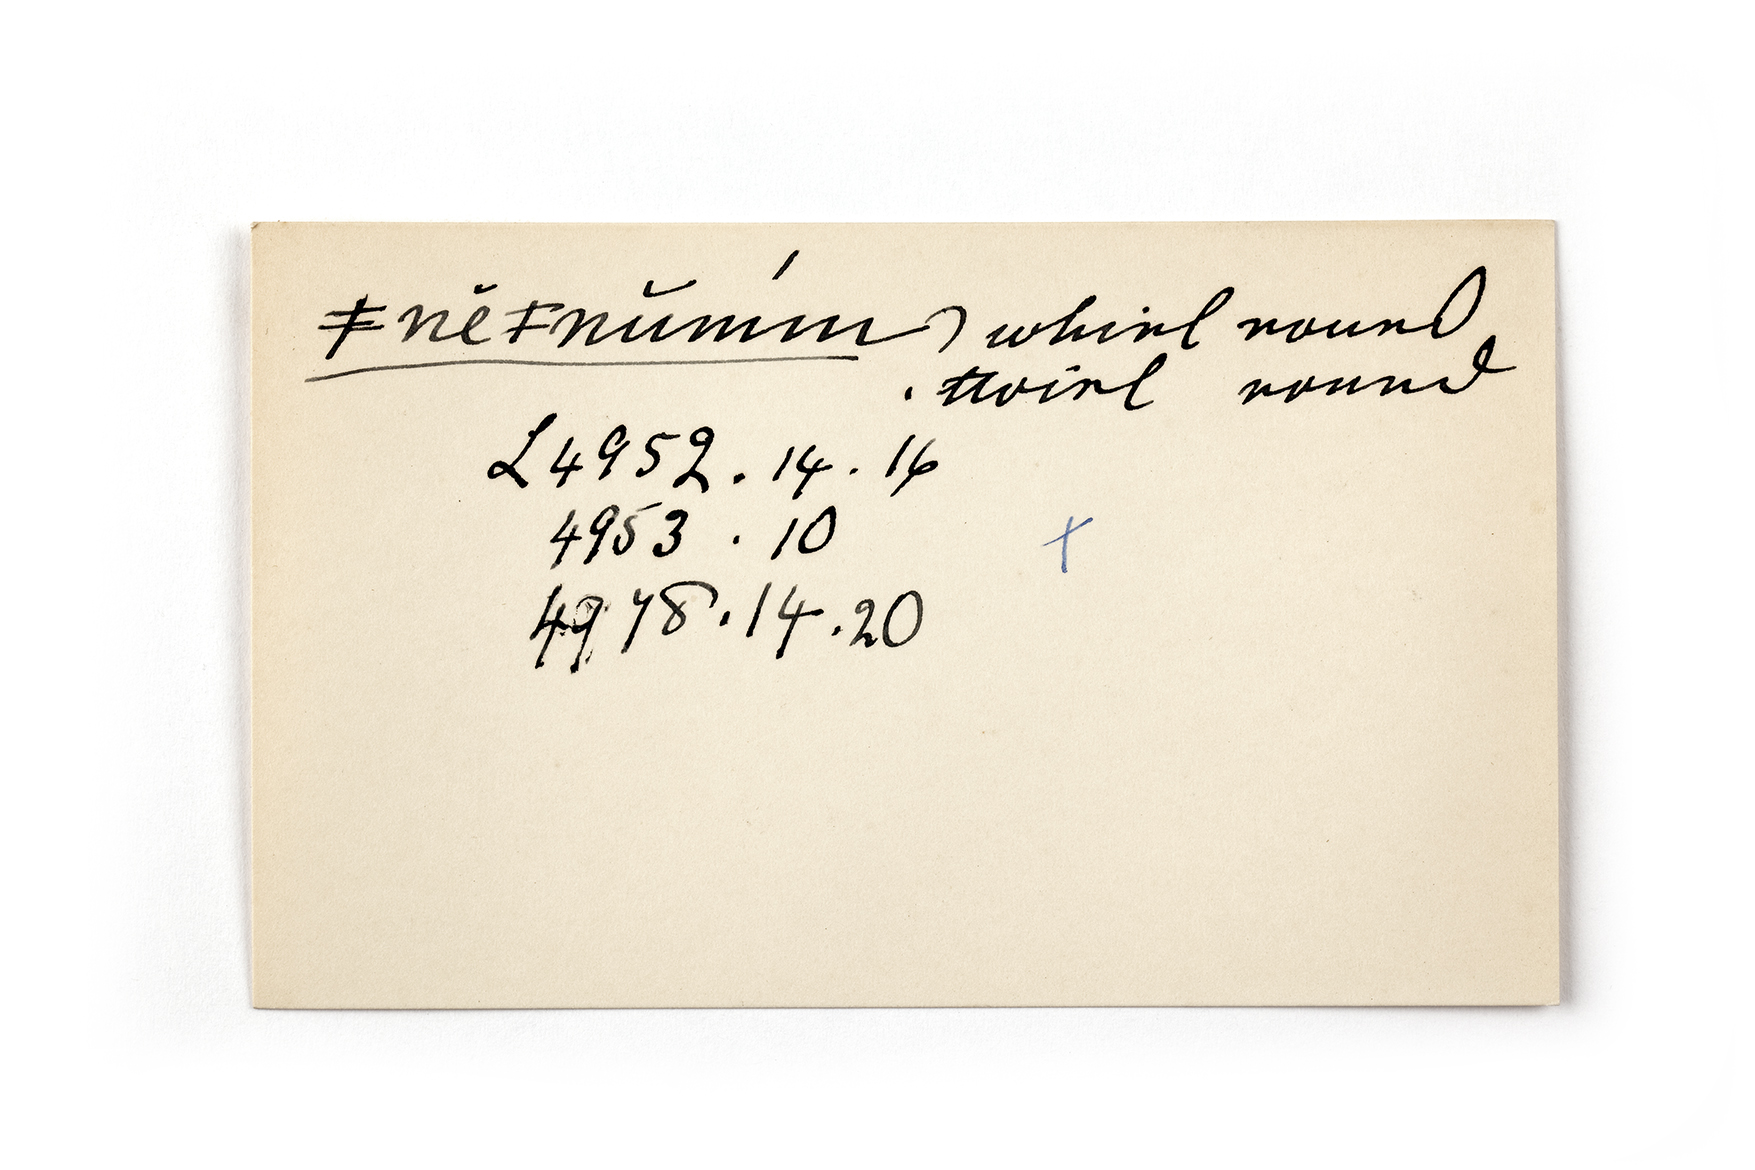 ǂnĕǂnŭmḿ) whirl round
. twirl round
L 4952 . 14 . 16
4953 . 10 +
4978 . 14 . 20